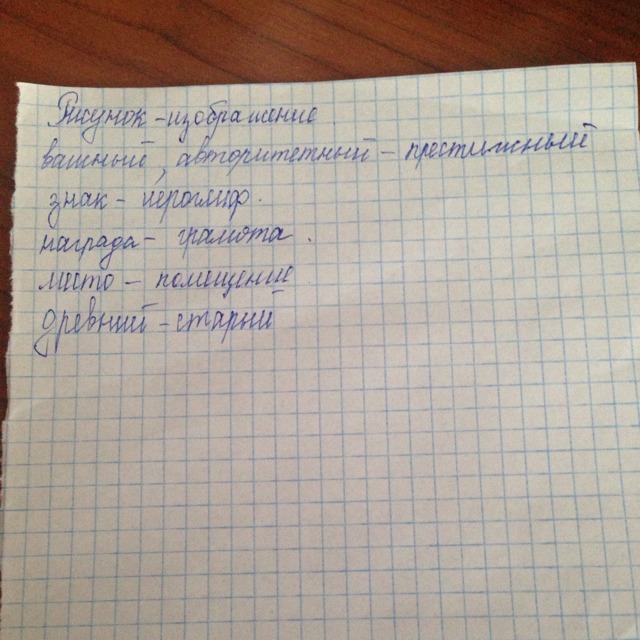 Рисунок - изображение
важный, авторитетный - престижный
знак - иероглиф.
награда - грамота.
место - помещение
древний - старый